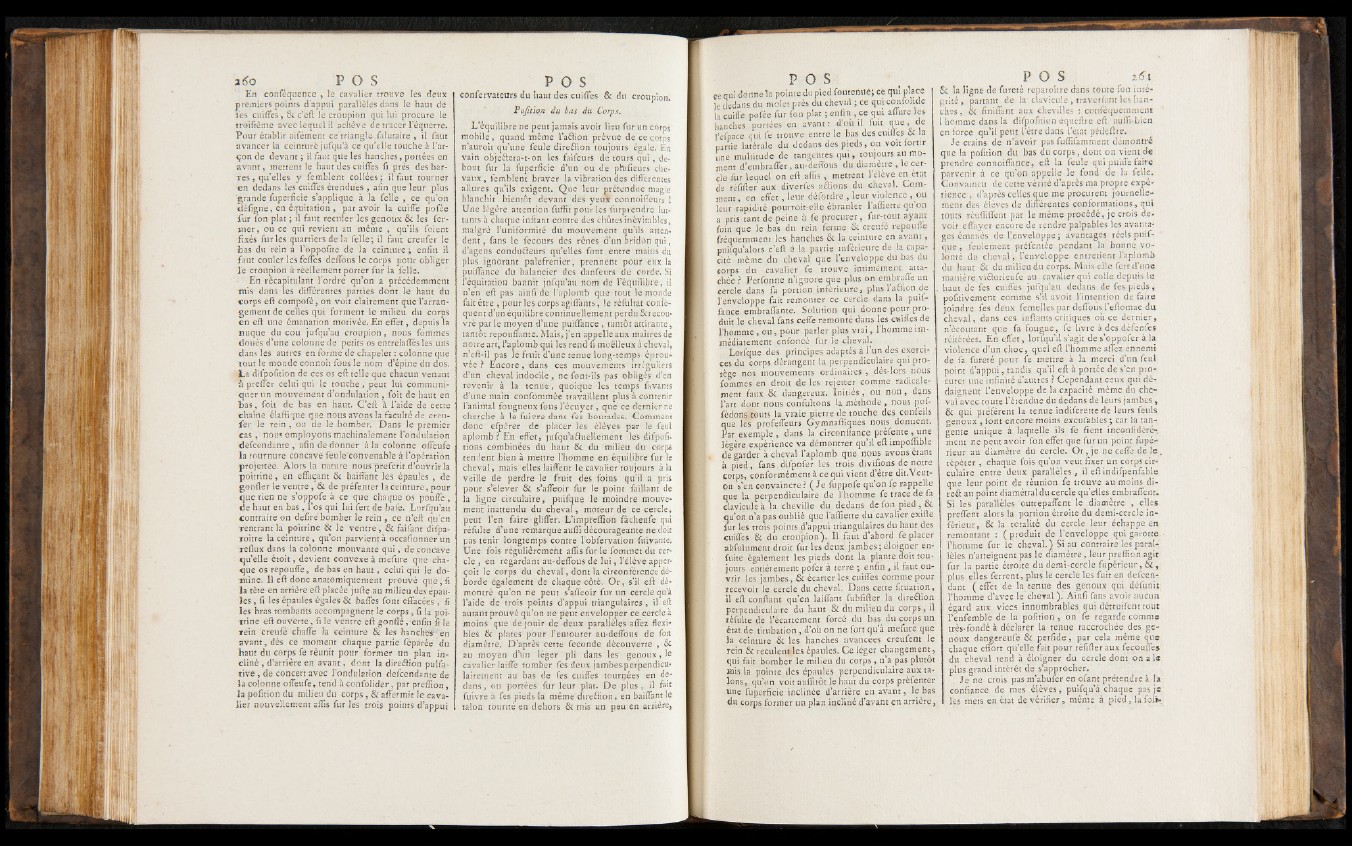 260 P O S
En conſéquence , le cavalier trouve les deux
premiers points d'appui parallèles dans le haut de
ſes cuiſſes, & c'eſt le croupion qui lui procure le
troiſième avec lequel il achève de tracer l'équerre.
Pour établir aiſément ce triangle ſalutaire , il faut
avancer la ceinture juſqu'à ce qu'elle touche à l'ar-
çon de devant ; il faut que les hanches, portées en
avant, mettent le haut des cuiſſes ſi près des bar-
res , qu'elles y ſemblent collées ; il faut tourner
en dedans les cuiſſes étendues , afin que leur plus
grande ſuperficie s'applique à la ſelle , ce qu'on
déſigne, en équitation , par avoir la cuiſſe poſée
ſur ſon plat ; il faut reculer les genoux & les fer-
mer , ou ce qui revient au même , qu'ils ſoient
fixés ſur les quartiers de la ſelle; il faut creuſer le
bas du rein à l'oppoſite de la ceinture ; enfin il
faut couler les feſſes deſſous le corps pour obliger
le croupion à réellement porter ſur la ſelle.
En récapitulant l'ordre qu'on a précédemment
mis dans les différentes parties dont le haut du
corps eſt compoſé, on voit clairement que l'arran-
gement de celles qui forment le milieu du corps
en eſt une émanation motivée. En effet , depuis la
nuque du cou juſqu'au croupion , nous ſommes
doués d'une colonne de petits os entrelaſſés les uns
dans les autres en forme de chapelet : colonne que
tout le monde connoît ſous le nom d'épine du dos.
La diſpoſition de ces os eſt telle que chacun venant
à preſſer celui qui le touche , peut lui communi-
quer un mouvement d'ondulation , ſoit de haut en
bas, ſoit de bas en haut. C'eſt à l'aide de cette
chaîne élaſtique que nous avons la faculté de creu-
ſer le rein , ou de le bomber. Dans le premier
cas , nous employons machinalement l'ondulation
deſcendante , afin de donner à la colonne oſſeuſe
la tournure concave ſeule convenable à l'opération
projettée. Alors la nature nous preſcrit d'ouvrir la
poitrine , en effaçant & baiſſant les épaules , de
gonfler le ventre, & de préſenter la ceinture, pour
que rien ne s'oppoſe à ce que chaque os pouſſe ,
de haut en bas , l'os qui lui ſert de baſe. Lorſqu'au
contraire on deſire bomber le rein , ce n'eſt qu'en
rentrant la poitrine & le ventre , & faiſant diſpa-
roître la ceinture , qu'on parvient à occaſionner un
reflux dans la colonne mouvante qui , de concave
qu'elle étoit , devient convexe à meſure que cha-
que os repouſſe , de bas en haut , celui qui le do-
mine. Il eſt donc anatomiquement prouvé que , ſi
la tête en arrière eſt placée juſte au milieu des épau-
les , ſi les épaules égales & baſſes ſont effacées , ſi
les bras tombants accompagnent le corps , ſi la poi-
trine eſt ouverte, ſi le ventre eſt gonflé , enfin ſi le
rein creuſé chaſſe la ceinture & les hanches en
avant , dès ce moment chaque partie ſéparée du
haut du corps ſe réunit pour former un plan in-
cliné , d'arrière en avant , dont la direction pulſa-
tive , de concert avec l'ondulation deſcendante de
la colonne oſſeuſe, tend à conſolider , par preſſion ,
la poſition du milieu du corps , & affermit le cava-
lier nouvellement aſſis ſur les trois points d'appui
P O S
conſervateurs du haut des cuiſſes & du croupion.
Poſition du bas du Corps.
L'équilibre ne peut jamais avoir lieu ſur un corps
mobile , quand même l'action prévue de ce corps
n'auroit qu'une ſeule direction toujours égale. En
vain objectera-t-on les faiſeurs de tours qui , de-
bout ſur la ſuperficie d'un ou de pluſieurs che-
vaux , ſemblent braver la vibration des différentes
allures qu'ils exigent. Que leur prétendue magie
blanchit bientôt devant des yeux connoiſſeurs !
Une légère attention ſuffit pour les ſurprendre lut-
tants à chaque inſtant contre des chûtes inévitables,
malgré l'uniformité du mouvement qu'ils atten-
dent , ſans le ſecours des rênes d'un bridon qui ,
d'agens conducteurs qu'elles ſont entre mains du
plus ignorant palefrenier , prennent pour eux la
puiſſance du balancier des danſeurs de corde. Si
l'équitation bannit juſqu'au nom de l'équilibre , il
n'en eſt pas ainſi de l'aplomb que tout le monde
ſait être , pour les corps agiſſants , le réſultat conſé-
quent d'un équilibre continuellement perdu & recou-
vré par le moyen d'une puiſſance , tantôt attirante ,
tantôt repouſſante. Mais, j'en appelle aux maîtres de
notre art, l'aplomb qui les rend ſi moëlleux à cheval,
n'eſt-il pas le fruit d'une tenue long-temps éprou-
vée ? Encore , dans ces mouvements irréguliers
d'un cheval indocile , ne ſont-ils pas obligés d'en
revenir à la tenue , quoique les temps ſavants
d'une main conſommée travaillent plus à contenir
l'animal fougueux ſous l'écuyer , que ce dernier ne
cherche à le ſuivre dans ſes boutades. Comment
donc eſpérer de placer les élèves par le ſeul
aplomb ? En effet, juſqu'actuellement les diſpoſi-
tions combinées du haut & du milieu du corps
tendent bien à mettre l'homme en équilibre ſur le
cheval , mais elles laiſſent le cavalier toujours à la
veille de perdre le fruit des ſoins qu'il a pris
pour s'élever & s'aſſeoir ſur le point ſaillant de
la ligne circulaire , puiſque le moindre mouve-
ment inattendu du cheval , moteur de ce cercle,
peut l'en faire gliſſer. L'impreſſion fâcheuſe qui
réſulte d'une remarque auſſi décourageante ne doit
pas tenir longtemps contre l'obſervation ſuivante.
Une fois régulièrement aſſis ſur le ſommet du cer-
cle , en regardant au-deſſous de lui , l'élève apper-
çoit le corps du cheval , dont la circonférence dé-
borde également de chaque côté. Or , s'il eſt dé-
montré qu'on ne peut s'aſſeoir ſur un cercle qu'à
l'aide de trois points d'appui triangulaires , il eſt
autant prouvé qu'on ne peut envelopper ce cercle à
moins que de jouir de deux parallèles aſſez flexi-
bles & plates pour l'entourer au-deſſous de ſon
diamètre. D'après cette ſeconde découverte , &
au moyen d'un léger pli dans les genoux , le
cavalier laiſſe tomber ſes deux jambes perpendicu-
lairement au bas de ſes cuiſſes tournées en de-
dans , ou portées ſur leur plat. De plus , il fait
ſuivre à ſes pieds la même direction , en baiſſant le
talon tourné en dehors & mis un peu en arrière,
P O S
ce qui donne la pointe du pied ſoutenue; ce qui place
le dedans du molet près du cheval ; ce qui conſolide
la cuiſſe poſée ſur ſon plat ; enfin , ce qui aſſure les
hanches portées en avant : d'où il ſuit que , de
l'eſpace qui ſe trouve entre le bas des cuiſſes & la
partie latérale du dedans des pieds, on voit ſortir
une multitude de tangentes qui , toujours au mo-
ment d'embraſſer , au-deſſous du diamètre , le cer-
cle ſur lequel on eſt aſſis , mettent l'élève en état
de réſiſter aux diverſes actions du cheval. Com-
ment , en effet , leur déſordre , leur violence , ou
leur rapidité pourroit-elle ébranler l'aſſiette qu'on
a pris tant de peine à ſe procurer , ſur-tout ayant
ſoin que le bas du rein ferme & creuſé repouſſe
fréquemment les hanches & la ceinture en avant ,
puiſqu'alors c'eſt à la partie inférieure de la capa-
cité même du cheval que l'enveloppe du bas du
corps du cavalier ſe trouve intimement atta-
chée ? Perſonne n'ignore que plus on embraſſe un
cercle dans ſa portion inférieure, plus l'action de
l'enveloppe fait remonter ce cercle dans la puiſ-
ſance embraſſante. Solution qui donne pour pro-
duit le cheval ſans ceſſe remonté dans les cuiſſes de
l'homme , ou , pour parler plus vrai , l'homme im-
médiatement enfoncé ſur le cheval.
Lorſque des principes adaptés à l'un des exerci-
ces du corps dérangent la perpendiculaire qui pro-
tège nos mouvements ordinaires , dès-lors nous
ſommes en droit de les rejetter comme radicale-
ment faux & dangereux. Initiés , ou non , dans
l'art dont nous conſultons la méthode , nous poſ-
ſédons tous la vraie pierre de touche des conſeils
que les profeſſeurs Gymnaſtiques nous donnent.
Par exemple , dans la circonſtance préſente , une
légère expérience va démontrer qu'il eſt impoſſible
de garder à cheval l'aplomb que nous avons étant
à pied , ſans diſpoſer les trois diviſions de notre
corps, conformément à ce qui vient d'être dit. Veut-
on s'en convaincre ? ( Je ſuppoſe qu'on ſe rappelle
que la perpendiculaire de l'homme ſe trace de ſa
clavicule à la cheville du dedans de ſon pied , &
qu'on n'a pas oublié que l'aſſiette du cavalier exiſte
ſur les trois points d'appui triangulaires du haut des
cuiſſes & du croupion ). Il faut d'abord ſe placer
abſolument droit ſur les deux jambes; éloigner en-
ſuite également les pieds dont la plante doit tou-
jours entièrement poſer à terre ; enfin , il faut ou-
vrir les jambes, & écarter les cuiſſes comme pour
recevoir le cercle du cheval. Dans cette ſituation,
il eſt conſtant qu'en laiſſant ſubſiſter la direction
perpendiculaire du haut & du milieu du corps, il
réſulte de l'écartement forcé du bas du corps un
état de titubation , d'où on ne ſort qu'à meſure que
la ceinture & les hanches avancées creuſent le
rein & reculent les épaules. Ce léger changement,
qui fait bomber le milieu du corps , n'a pas plutôt
mis la pointe des épaules perpendiculaire aux ta-
lons, qu'on voit auſſitôt le haut du corps préſenter
une ſuperficie inclinée d'arrière en avant , le bas
du corps former un plan incliné d'avant en arrière,
P O S 261
& la ligne de ſureté reparoître dans toute ſon inté-
grité , partant de la clavicule , traverſant les han-
ches , & finiſſant aux chevilles : conſéquemment
l'homme dans la diſpoſition équeſtre eſt auſſi-bien
en force qu'il peut l'être dans l'état pédeſtre.
Je crains de n'avoir pas ſuffiſamment démontré
que la poſition du bas du corps , dont on vient de
prendre connoiſſance , eſt la ſeule qui puiſſe faire
parvenir à ce qu'on appelle le fond de la ſelle.
Convaincu de cette vérité d'après ma propre expé-
rience , d'après celles que me procurent journelle-
ment des élèves de différentes conformations , qui
tous réuſſiſſent par le même procédé, je crois de-
voir eſſayer encore de rendre palpables les avanta-
ges émanés de l'enveloppe ; avantages réels puiſ-
que , ſeulement préſentée pendant la bonne vo-
lonté du cheval , l'enveloppe entretient l'aplomb
du haut & du milieu du corps. Mais elle ſert d'une
manière victorieuſe au cavalier qui colle depuis le
haut de ſes cuiſſes juſqu'au dedans de ſes pieds ,
poſitivement comme s'il avoit l'intention de faire
joindre ſes deux ſemelles par deſſous l'eſtomac du
cheval , dans ces inſtants critiques où ce dernier ,
n'écoutant que ſa fougue , ſe livre à des défenſes
réitérées. En effet , lorſqu'il s'agit de s'oppoſer à la
violence d'un choc , quel eſt l'homme aſſez ennemi
de ſa ſureté pour ſe mettre à la merci d'un ſeul
point d'appui , tandis qu'il eſt à portée de s'en pro-
curer une infinité d'autres ? Cependant ceux qui dé-
daignent l'enveloppe de la capacité même du che-
val avec toute l'étendue du dedans de leurs jambes ,
& qui préfèrent la tenue indiſcrette de leurs ſeuls
genoux , ſont encore moins excuſables ; car la tan-
gente unique à laquelle ils ſe fient inconſidéré-
ment ne peut avoir ſon effet que ſur un point ſupé-
rieur au diamètre du cercle. Or , je ne ceſſe de le
répéter , chaque fois qu'on veut fixer un corps cir-
culaire entre deux parallèles , il eſt indiſpenſable
que leur point de réunion ſe trouve au moins di-
rect au point diamétral du cercle qu'elles embraſſent.
Si les parallèles outrepaſſent le diamètre , elles
preſſent alors la portion étroite du demi-cercle in-
férieur , & la totalité du cercle leur échappe en
remontant : ( produit de l'enveloppe qui garotte
l'homme ſur le cheval. ) Si au contraire les paral-
lèles n'atteignent pas le diamètre , leur preſſion agit
ſur la partie étroite du demi-cercle ſupérieur, &,
plus elles ſerrent, plus le cercle les fuit en deſcen-
dant ( effet de la tenue des genoux qui déſunit
l'homme d'avec le cheval ). Ainſi ſans avoir aucun
égard aux vices innombrables qui détruiſent tout
l'enſemble de la poſition , on ſe regarde comme
très-fondé à déclarer la tenue raccrochée des ge-
noux dangereuſe & perfide , par cela même que
chaque effort qu'elle fait pour réſiſter aux ſecouſſes
du cheval tend à éloigner du cercle dont on a le
plus grand intérêt de s'approcher.
Je ne crois pas m'abuſer en oſant prétendre à la
confiance de mes élèves , puiſqu'à chaque pas je
les mets en état de vérifier , même à pied , la ſoli-